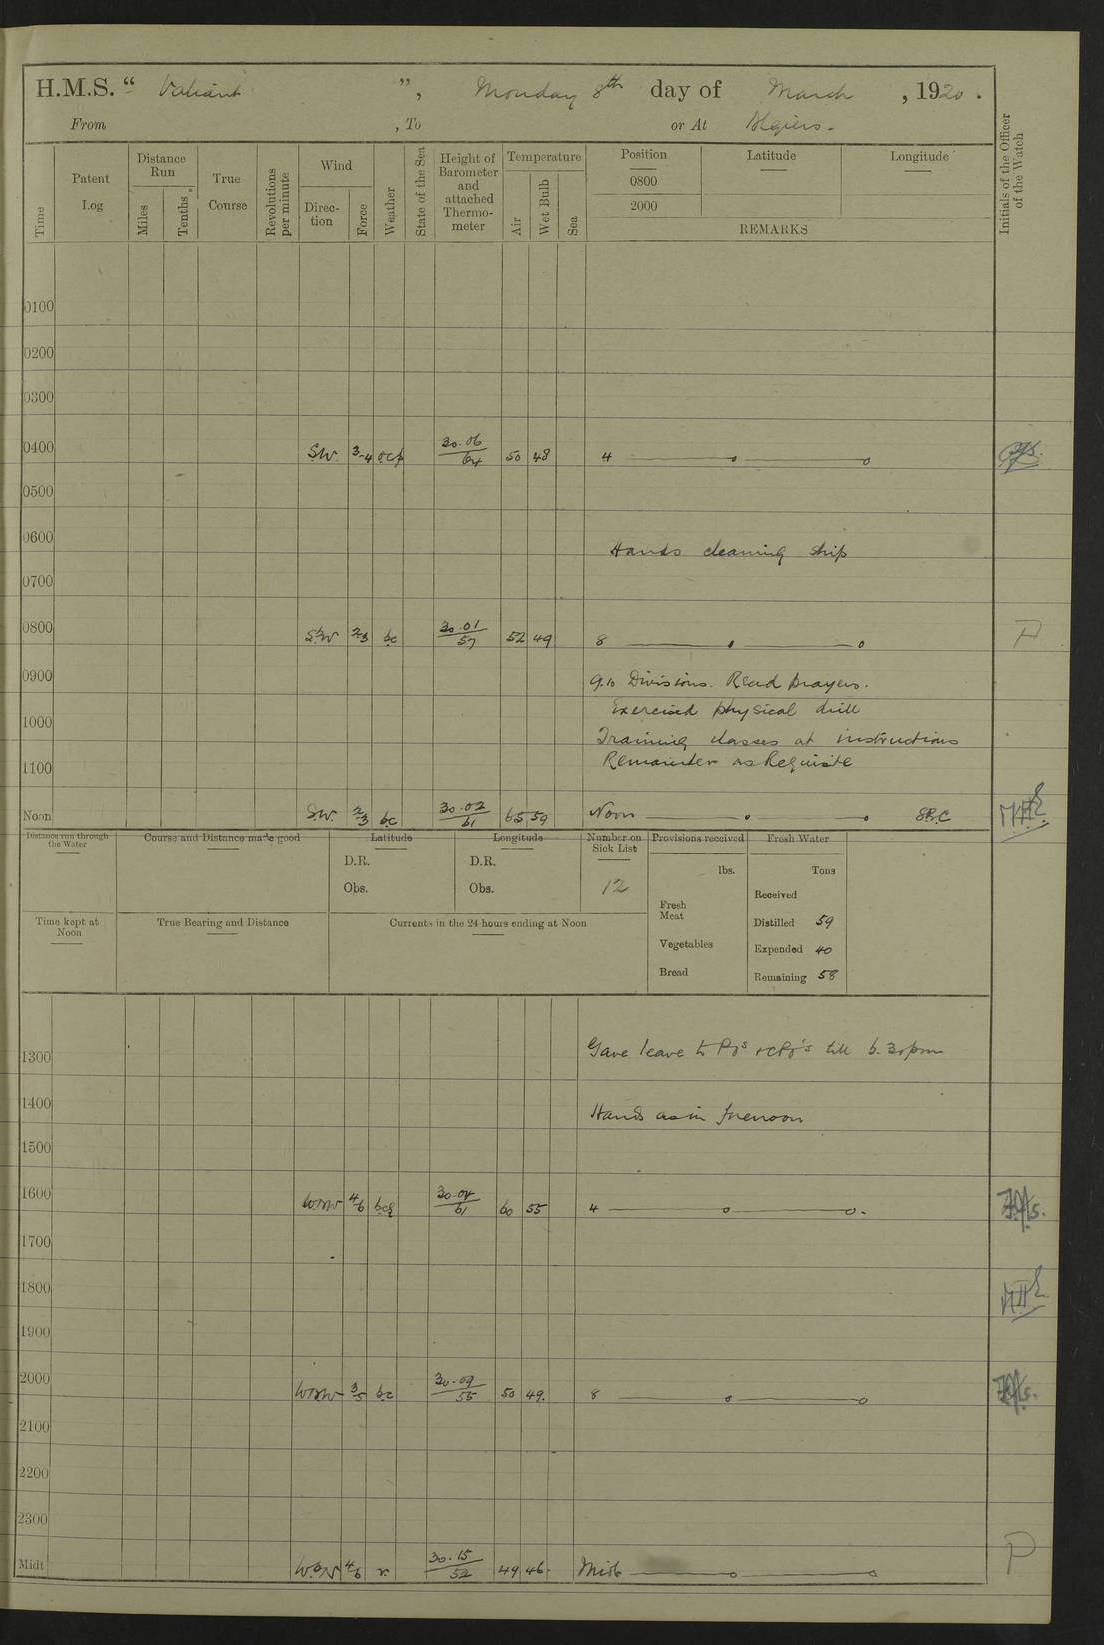 H.M.S. “ Valiant ”, Monday 8th day of March , 1920 .
From , To or At Algiers.
Time
Patent Log
Distance Run
Miles
Tenths
True Course
Revolutions per minute
Wind
Direction
Force
Weather
State of the Sea
Height of Barometer and attached Thermometer
Temperature
Air
Wet Bulb
Sea
Position
0800
2000
Latitude
Longitude
REMARKS
Initials of the Officer of the Watch
0100
0200
0300
0400 SW 3-4 ocp 30.06/64 50 48 4
0500
0600
Hands cleaning ship
0700
0800 SW 2/3 bc 30.01/57 52 49 8 P
0900 9.10 Divisions. Read prayers.
Exercised physical drill
1000
Training classes at instructions
1100 Remainder as Requisite
Noon SW 2/3 bc 30.02/61 65 59 Noon
Distance run through the Water
Course and Distance made good
Latitude
Longitude
Number on Sick List
Provisions received
Fresh Water
D.R. D.R.
Obs. Obs.
12
lbs.
Tons
Fresh Meat
Vegetables
Bread
Received
Distilled 59
Expended 40
Remaining 58
Time kept at Noon
True Bearing and Distance
Currents in the 24 hours ending at Noon
1300 Gave leave to POs & CPO's till 6.30pm
1400 Hands as in forenoon
1500
1600 WNW 4/6 bcq 61 60 55 4
1700
1800
1900
2000 WNW 3/5 bc 30.09/55 50 49. 8
2100
2200
2300
Midt 4/6 r 30.15/52 49 46 Midt P